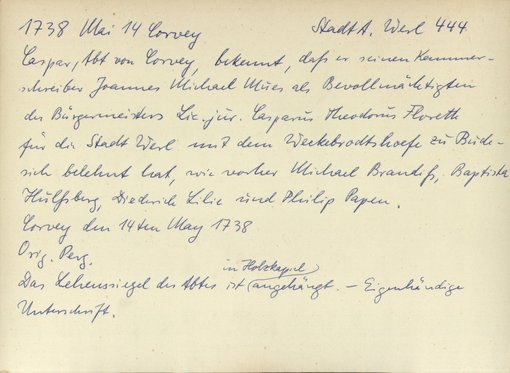 1738 Mai 14 Corvey StadtA. Werl 444
Caspar, Abt von Corvey, bekennt, daß er seinen Kammer-
schreiber Joannes Michael Mües als Bevollmächtigten
des Bürgermeisters Lic. jur. Casparus Theodorus Floreth
für die Stadt Werl mit dem Weckebrodtshofe zu Büde-
rich belehnt hat, wie vorher Michael Brandiß, Baptista
Hülßberg, Diederich Lilie und Philip Papen.
Corvey den 14ten May 1738
Orig. Perg.
in Holzkapsel
Das Lehenssiegel des Abtes ist angehängt. – Eigenhändige
Unterschrift.